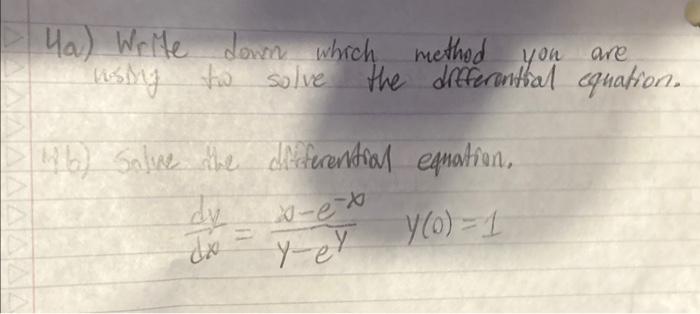 4a) Write down which method you are
using to solve the differential equation.
4b) Solve the differential equation.
dy/dx = x-e^-x / y-e^y y(0)=1